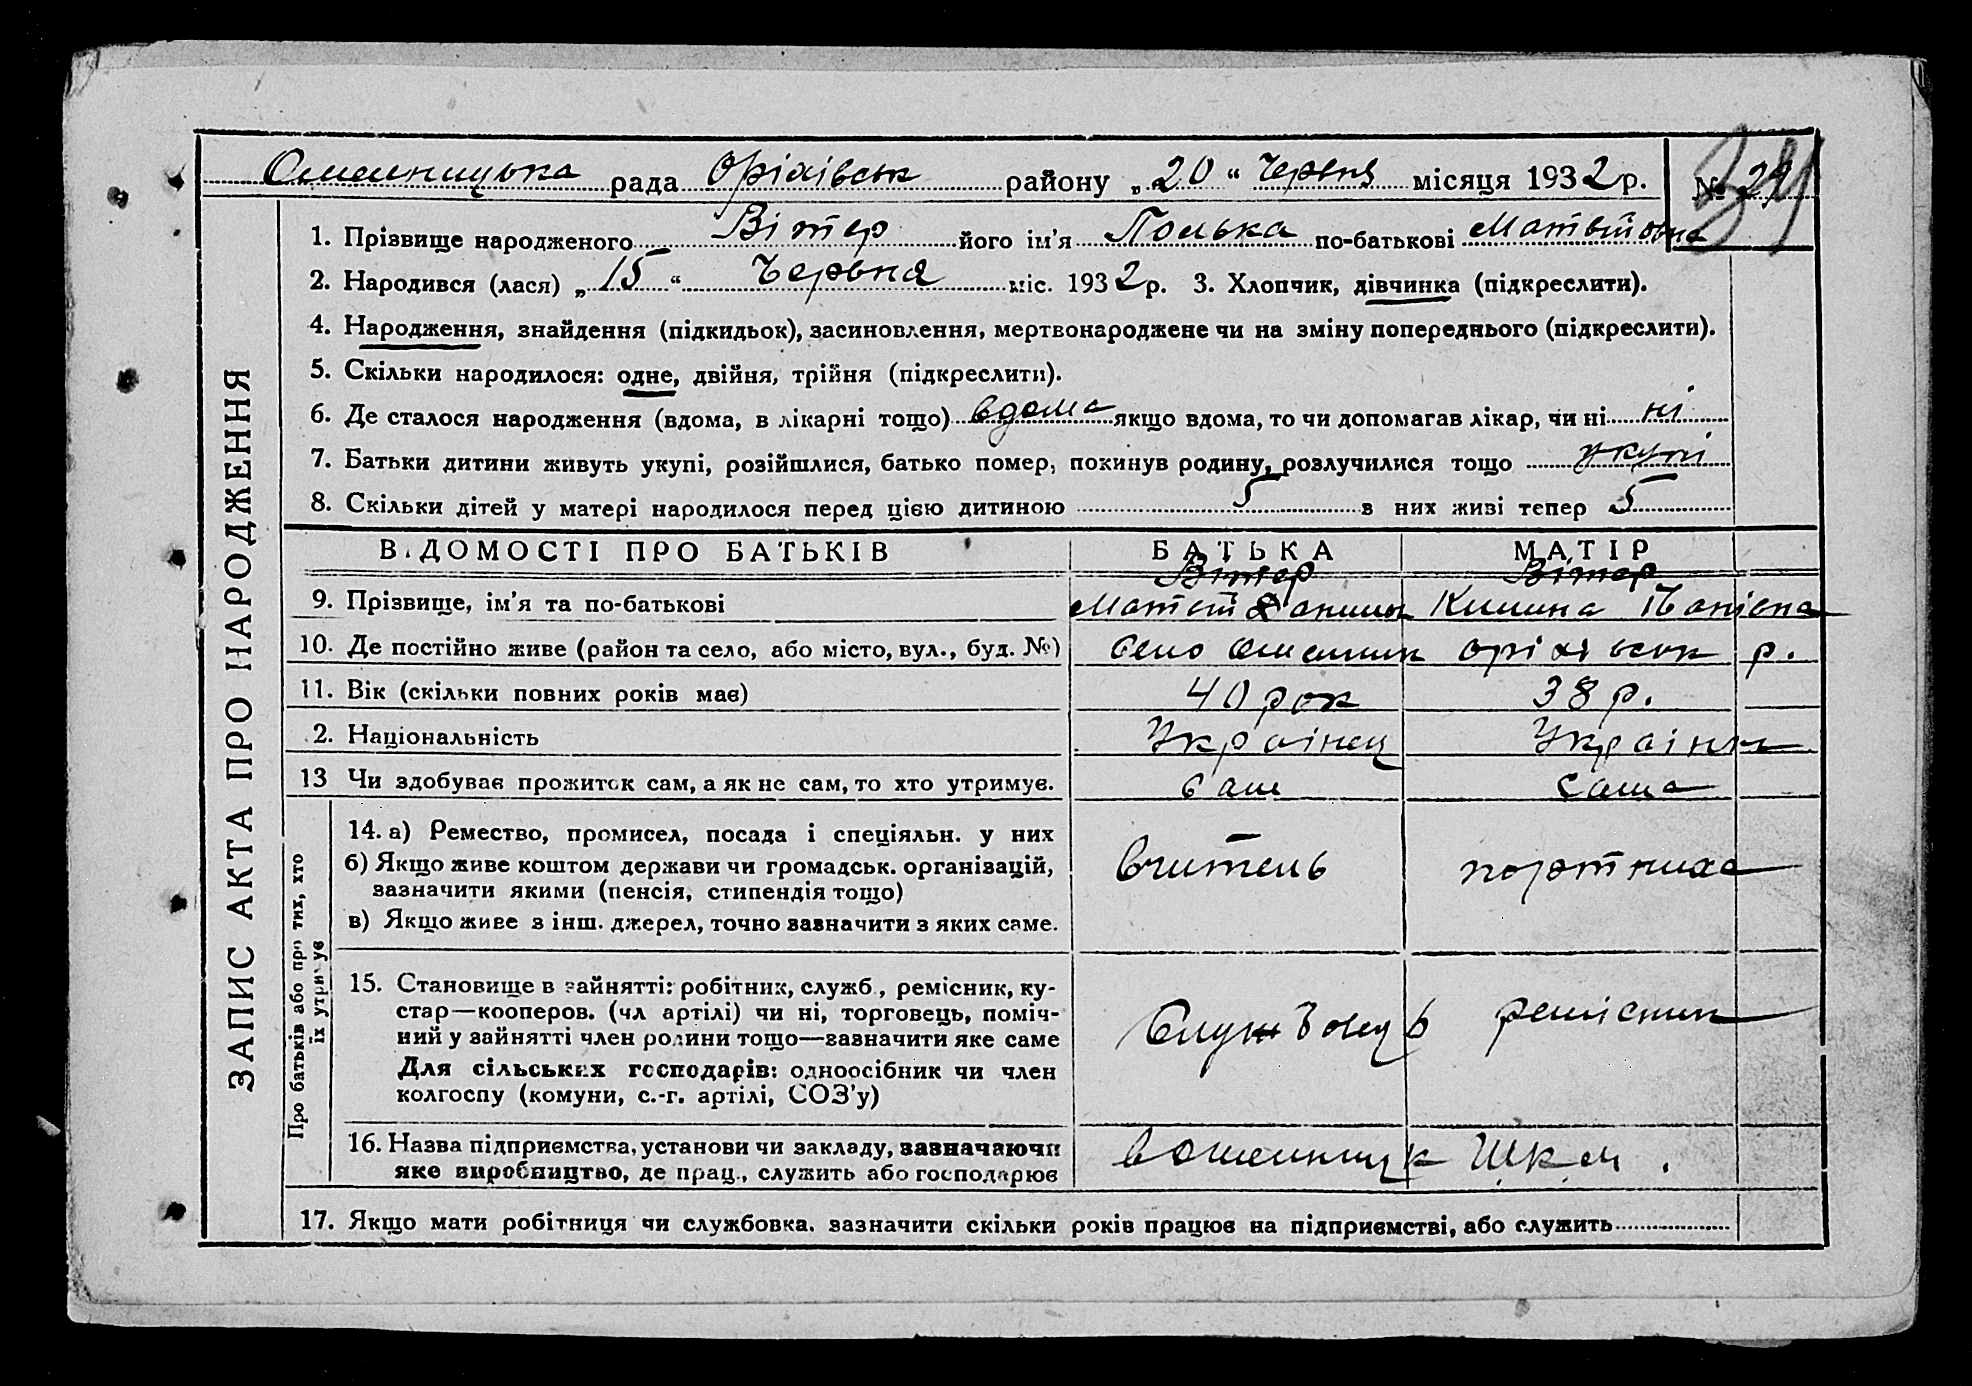 Омельницька рада Оріхівськ району „20“ Червня місяця 1932 р. № 29
1. Прізвище народженого Вітер його ім'я Полька по-батькові
2. Народився (лася) „15“ Червня міс. 1932 р. 3. Хлопчик, дівчинка (підкреслити).
4. Народження, знайдення (підкидьок), засиновлення, мертвонароджене чи на зміну попереднього (підкреслити).
5. Скільки народилося: одне, двійня, трійня (підкреслити).
6. Де сталося народження (вдома, в лікарні тощо) вдома якщо вдома, то чи допомагав лікар, чи ні ні
7. Батьки дитини живуть укупі, розійшлися, батько помер, покинув родину, розлучилися тощо укупі
8. Скільки дітей у матері народилося перед цією дитиною 5 з них живі тепер 5
ЗАПИС АКТА ПРО НАРОДЖЕННЯ
ВІДОМОСТІ ПРО БАТЬКІВ БАТЬКА МАТІР
Вітер Вітер
9. Прізвище, ім'я та по-батькові
10. Де постійно живе (район та село, або місто, вул., буд. №) село оріхівськ р.
11. Вік (скільки повних років має) 40 рок 38 р.
2. Національність Українец Українк
13 Чи здобуває прожиток сам, а як не сам, то хто утримує. сам сама
Про батьків або про тих, хто
їх утримує
14. а) Ремество, промисел, посада і спеціяльн. у них
б) Якщо живе коштом держави чи громадськ. організацій, вчитель портниха
зазначити якими (пенсія, стипендія тощо)
в) Якщо живе з інш. джерел, точно зазначити з яких саме.
15. Становище в зайнятті: робітник, служб., ремісник, ку-
стар—кооперов. (чл артілі) чи ні, торговець, поміч- ремісник
ний у зайнятті член родини тощо—зазначити яке саме
Для сільських господарів: одноосібник чи член
колгоспу (комуни, с.-г. артілі, СОЗ'у)
16. Назва підприємства, установи чи закладу, зазначаючи
яке виробництво, де прац., служить або господарює
17. Якщо мати робітниця чи службовка. зазначити скільки років працює на підприємстві, або служить